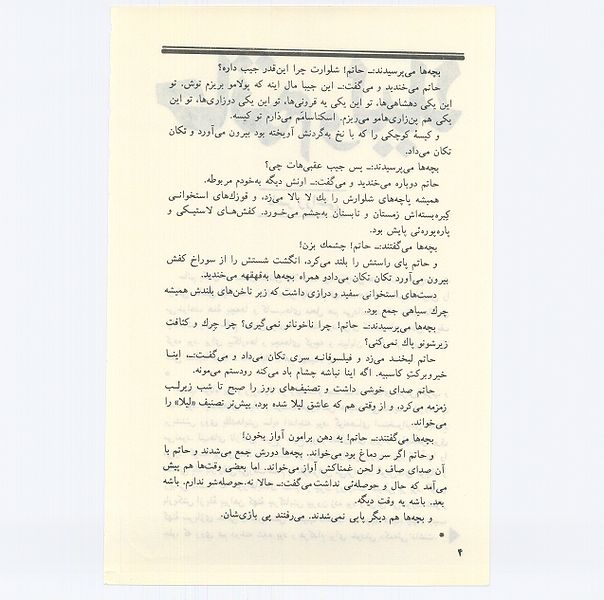 بچه‌ها می‌پرسیدند:ــ حاتم! شلوارت چرا این‌قدر جیب داره؟
حاتم می‌خندید و می‌گفت:ــ این جیبا مال اینه که پولامو بریزم توش. تو
این یکی دهشاهی‌ها، تو این یکی یه قرونی‌ها، تو این یکی دوزاری‌ها، تو این
یکی هم پن‌زاری‌هامو می‌ریزم. اسکناسامَم می‌ذارم تو کیسه.
و کیسهٔ کوچکی را که با نخ به‌گردنش آویخته بود بیرون می‌آورد و تکان
تکان می‌داد.
بچه‌ها می‌پرسیدند:ــ پس جیب عقبی‌هات چی؟
حاتم دوباره می‌خندید و می‌گفت:ــ اونش دیگه به‌خودم مربوطه.
همیشه پاچه‌های شلوارش را یك لا بالا می‌زد، و قوزك‌های استخوانی
کِبره‌بسته‌اش زمستان و تابستان به‌چشم می‌خورد. کفش‌های لاستیکی و
پاره‌پوره‌ئی پایش بود.
بچه‌ها می‌گفتند:ــ حاتم! چشمك بزن!
و حاتم پای راستش را بلند می‌کرد، انگشت شستش را از سوراخ کفش
بیرون می‌آورد تکان تکان می‌دادو همراه بچه‌ها به‌قهقهه می‌خندید.
دست‌های استخوانی سفید و درازی داشت که زیر ناخن‌های بلندش همیشه
چرك سیاهی جمع بود.
بچه‌ها می‌پرسیدند:ــ حاتم! چرا ناخوناتو نمی‌گیری؟ چرا چِرك و کثافت
زیرشونو پاك نمی‌کنی؟
حاتم لبخند می‌زد و فیلسوفانه سری تکان می‌داد و می‌گفت:ــ اینا
خیروبرکتِ کاسبیه. اگه اینا نباشه چشام باد می‌کنه رودستم می‌مونه.
حاتم صدای خوشی داشت و تصنیف‌های روز را صبح تا شب زیرلب
زمزمه می‌کرد، و از وقتی هم که عاشق لیلا شده بود، بیش‌تر تصنیف «لیلا» را
می‌خواند.
بچه‌ها می‌گفتند:ــ حاتم! یه دهن برامون آواز بخون!
و حاتم اگر سر دماغ بود می‌خواند. بچه‌ها دورش جمع می‌شدند و حاتم با
آن صدای صاف و لحن غمناکش آواز می‌خواند. اما بعضی وقت‌ها هم پیش
می‌آمد که حال و حوصله‌ئی نداشت می‌گفت:ــ حالا نه.حوصله‌شو ندارم. باشه
بعد. باشه یه وقت دیگه.
و بچه‌ها هم دیگر پاپی نمی‌شدند. می‌رفتند پی بازی‌شان.
۴